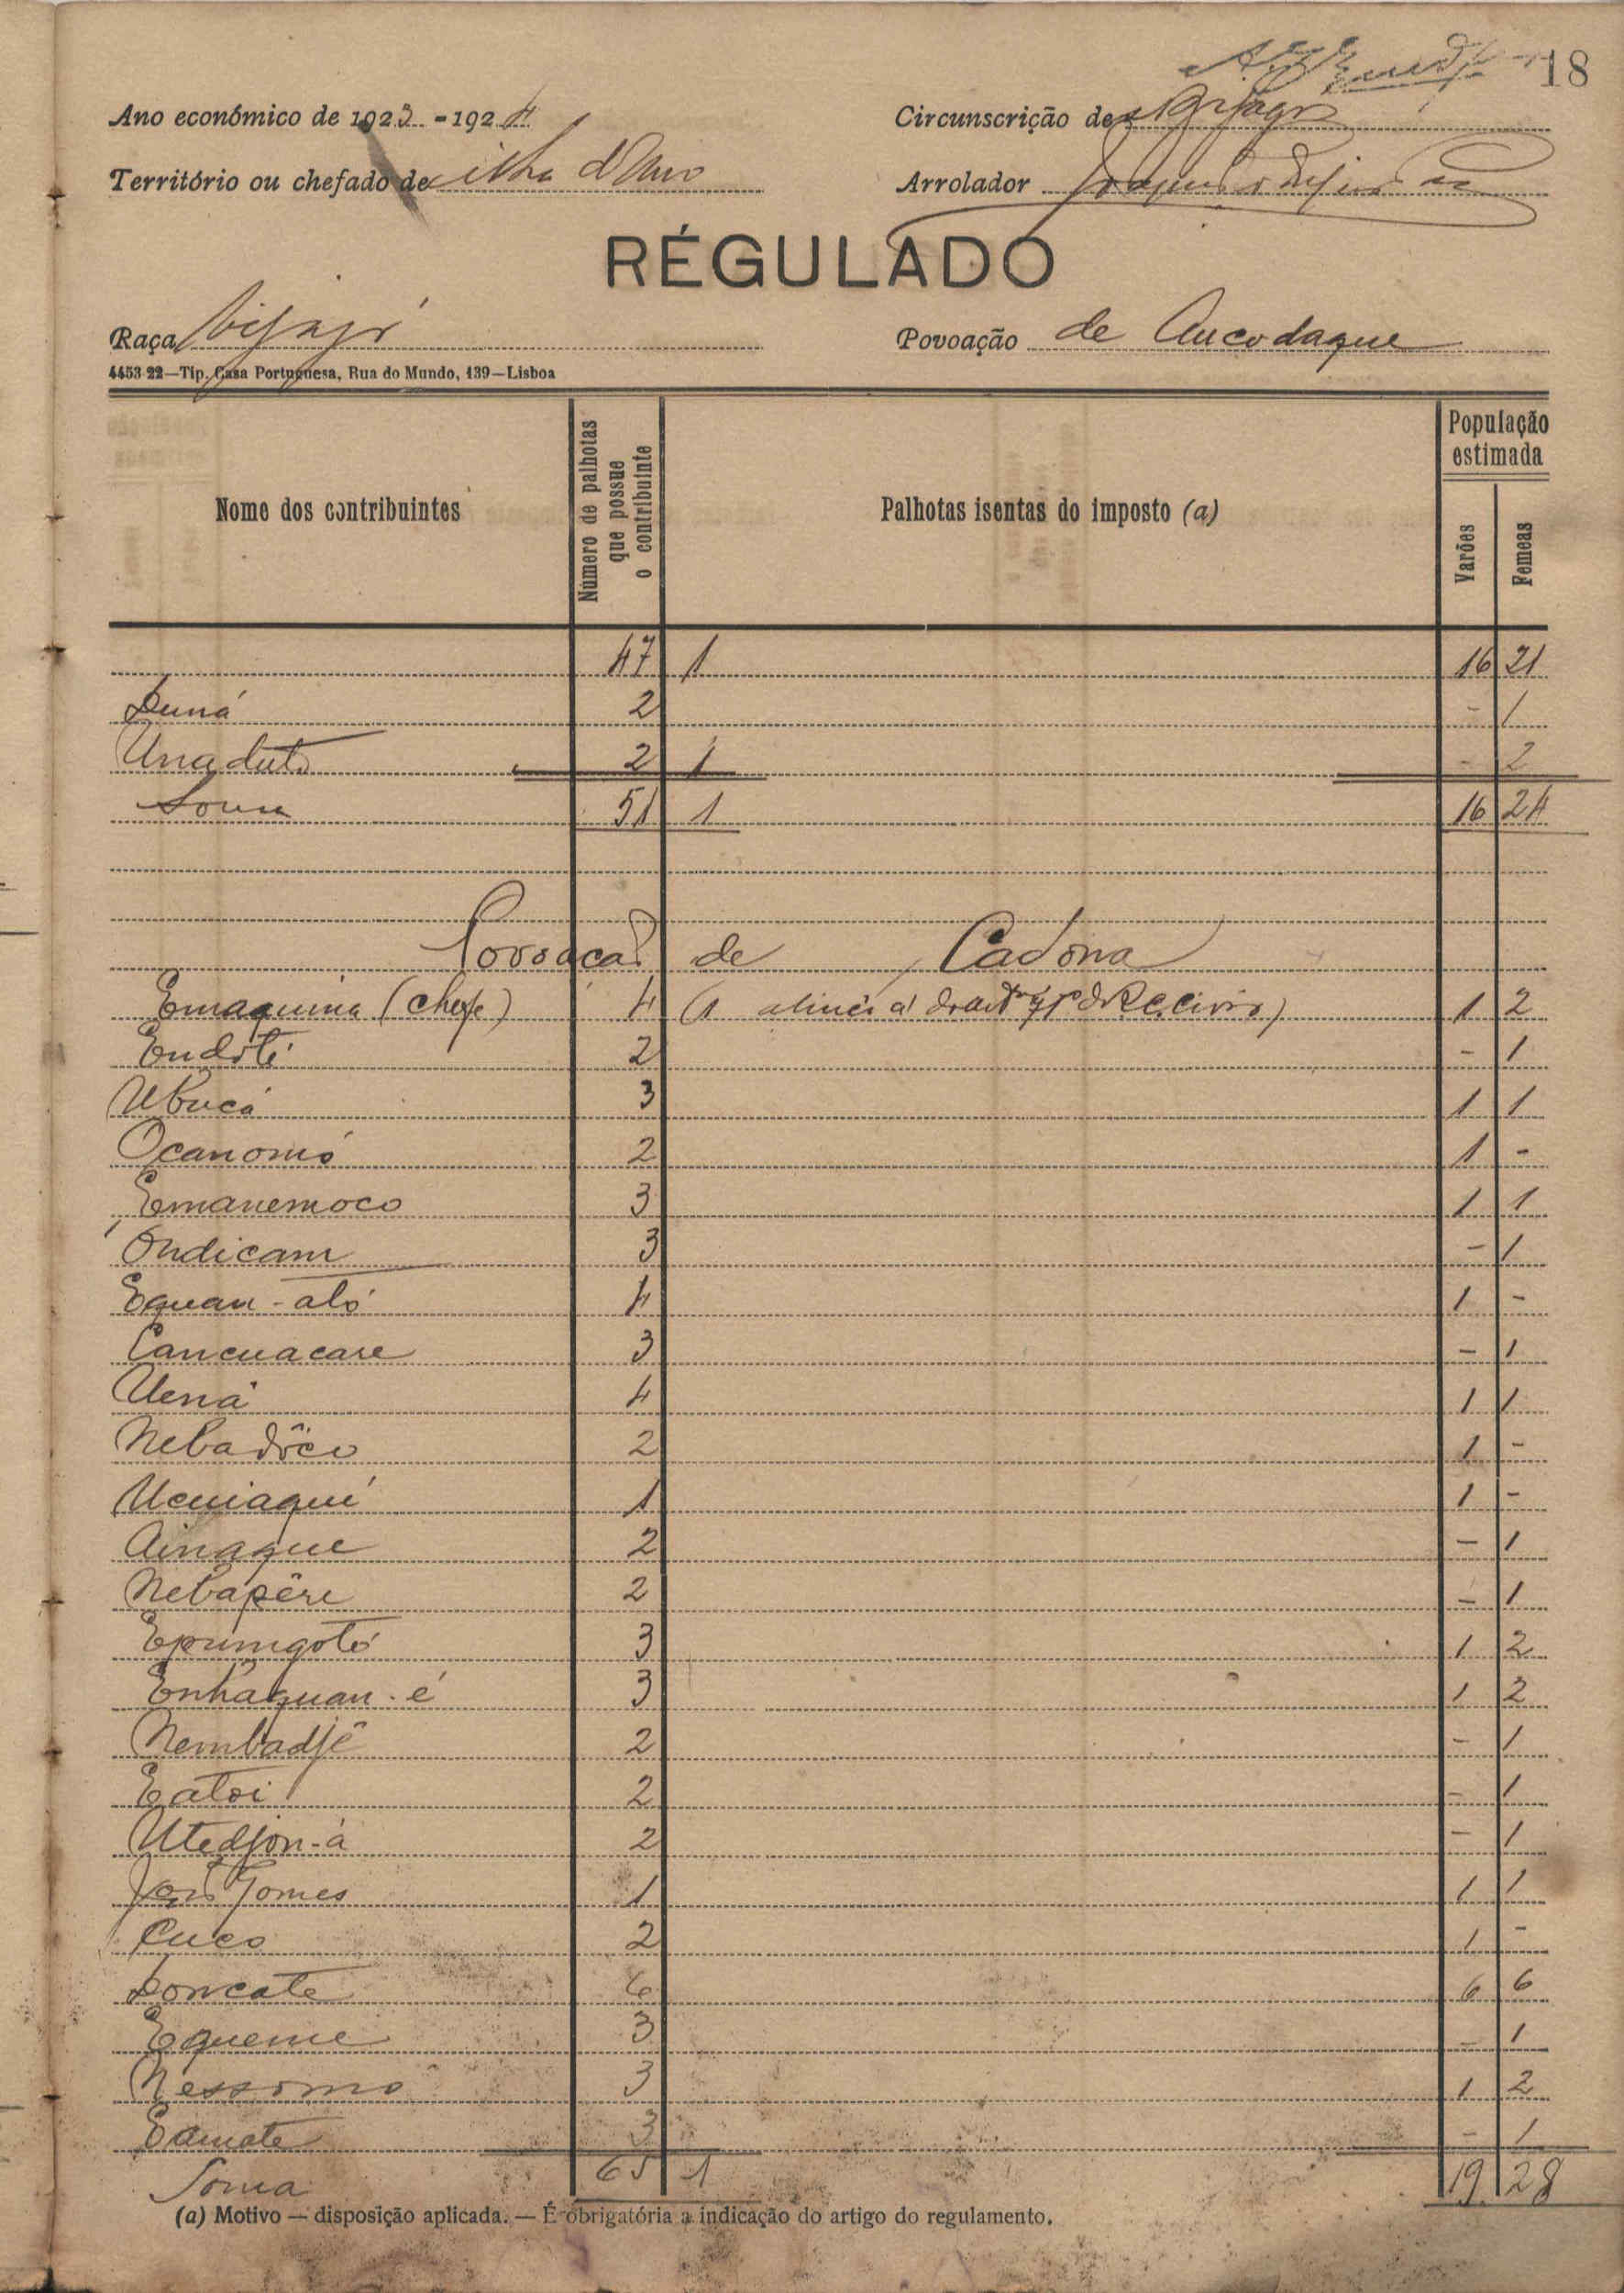 18
Ano económico de 1923-1924
Circunscrição de Bijagoz
Território ou chefado de ilha d'Uno
Arrolador
RÉGULADO
Raça bijagó
Povoação de Ancodaque
4453-22—Tip. Casa Portuguesa, Rua do Mundo, 139—Lisboa
Nome dos contribuintes
Número de palhotas que possue o contribuinte
Palhotas isentas do imposto (a)
População estimada
Varões
Femeas
47 1 16 21
Duná 2 - 1
Unaduto 2 1 - 2
Soma 51 1 16 24
Povoação de Cadona
Emaquina (chefe) 4 (1 alinea a) do art 7º do Rec. civis) 1 2
Endoté 2 - 1
Ubucá 3 1 1
Ocanomó 2 1 -
Emanemoco 3 1 1
Ondicam 3 - 1
Equan-aló 4 1 -
Cancuacare 3 - 1
Uená 4 1 1
Nebadôco 2 1 -
Ucuiaquí 1 1 -
Ainaque 2 - 1
Nebapêre 2 - 1
Epumgoté 3 1 2
Enhaquan-é 3 1 2
Nembadjê 2 - 1
Eatoi 2 - 1
Utedjon-à 2 - 1
Gomes 1 1 1
Cuco 2 1 -
Doncate 6 6 6
Equeme 3 - 1
Nessomo 3 1 2
Edmate 3 - 1
Soma 65 1 19 28
(a) Motivo — disposição aplicada. — É obrigatória a indicação do artigo do regulamento.